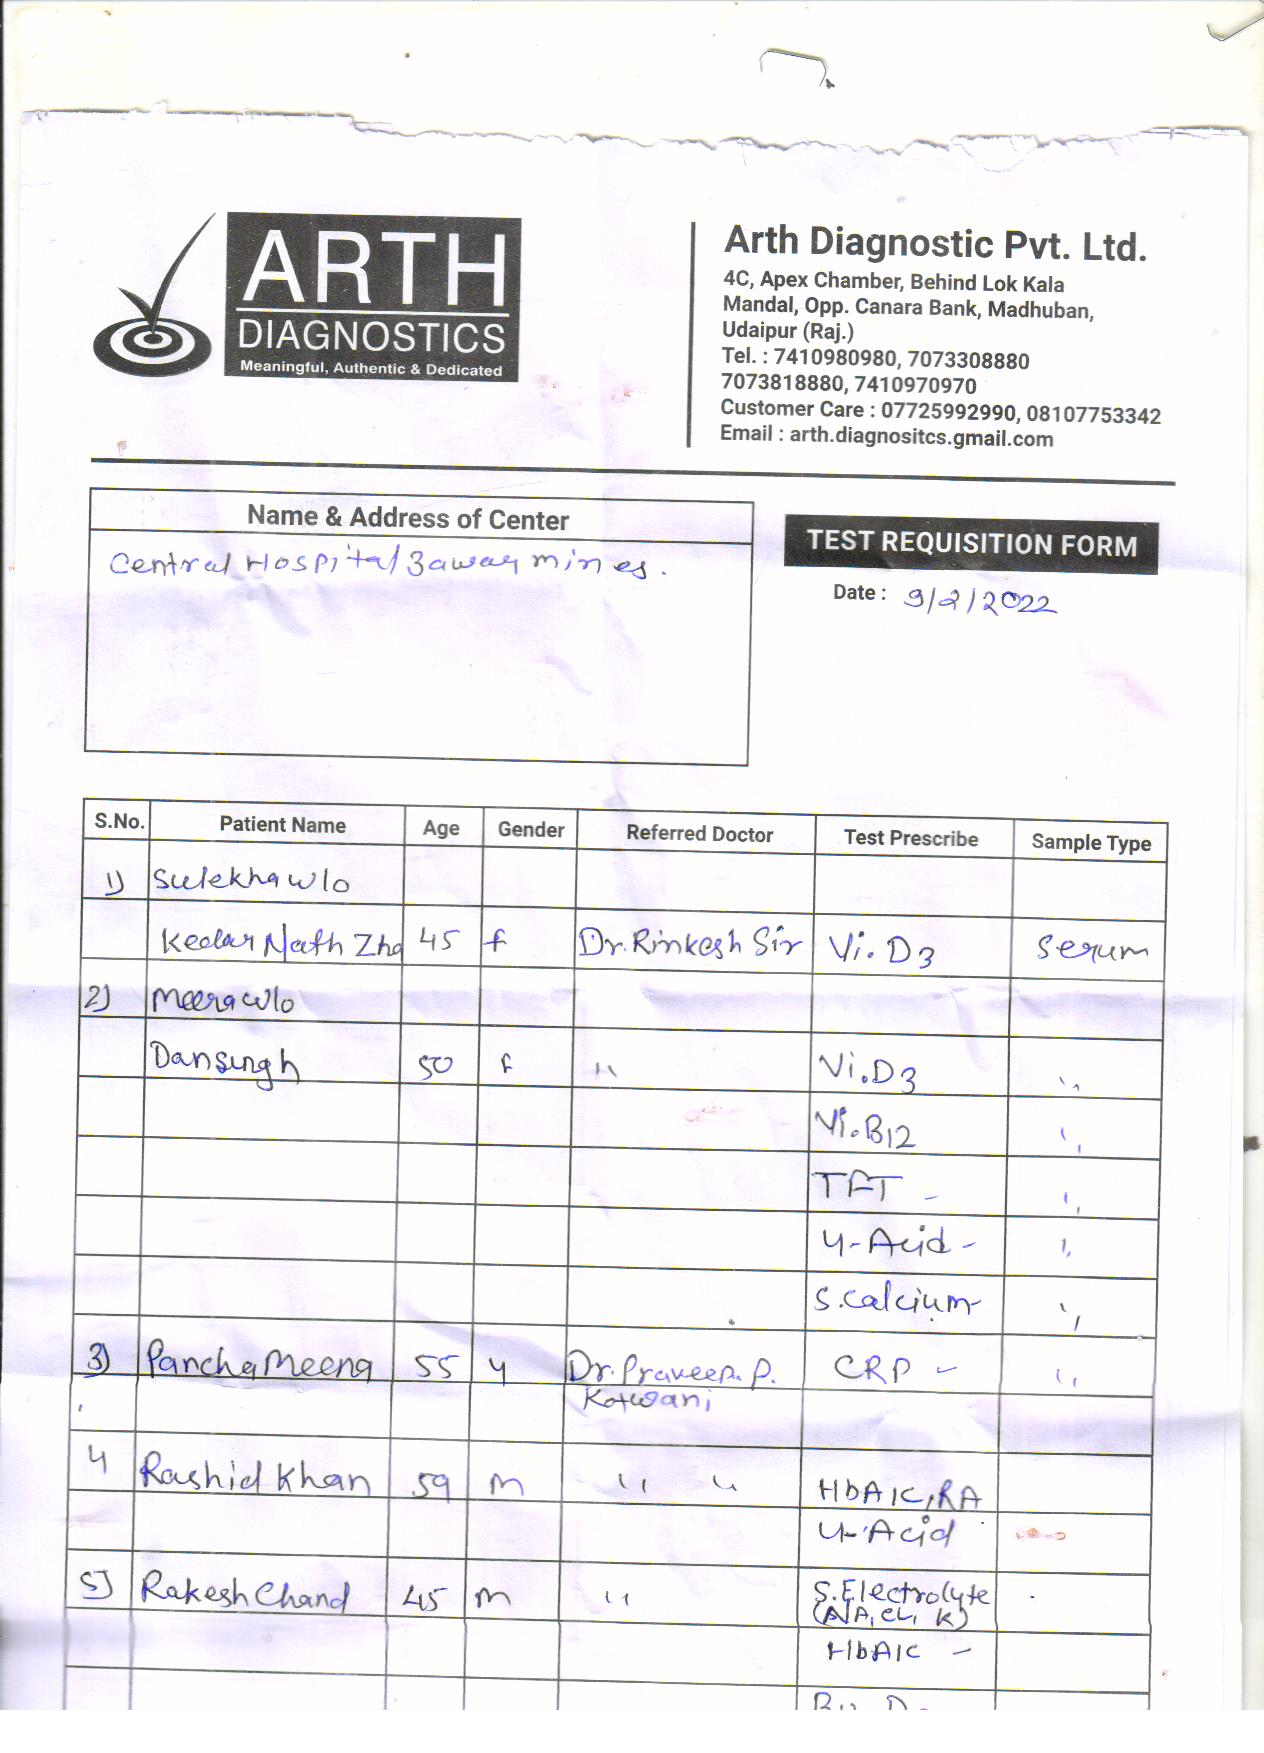 ARTH
DIAGNOSTICS
Meaningful, Authentic & Dedicated
Arth Diagnostic Pvt. Ltd.
4C, Apex Chamber, Behind Lok Kala
Mandal, Opp. Canara Bank, Madhuban,
Udaipur (Raj.)
Tel. : 7410980980, 7073308880
7073818880, 7410970970
Customer Care : 07725992990, 08107753342
Email : arth.diagnositcs.gmail.com
Name & Address of Center
Central Hospital Zawar mines.
TEST REQUISITION FORM
Date : 9/2/2022
S.No. Patient Name Age Gender Referred Doctor Test Prescribe Sample Type
1) Sulekha w/o
Kedar Nath Zha 45 f Dr. Rinkesh Sir Vi. D3 Serum
2) Meera w/o
Dansingh 50 f " Vi. D3 "
Vi. B12 "
TFT - "
U-Acid - "
S. Calcium- "
3) Pancha Meena 55 Dr. Praveen. P. CRP - "
Kotwani
4 Rashid Khan 59 m " " HbA1C, RA
U-Acid
5) Rakesh Chand 45 m " S. Electrolyte
(NA, CL, K)
HbA1C -